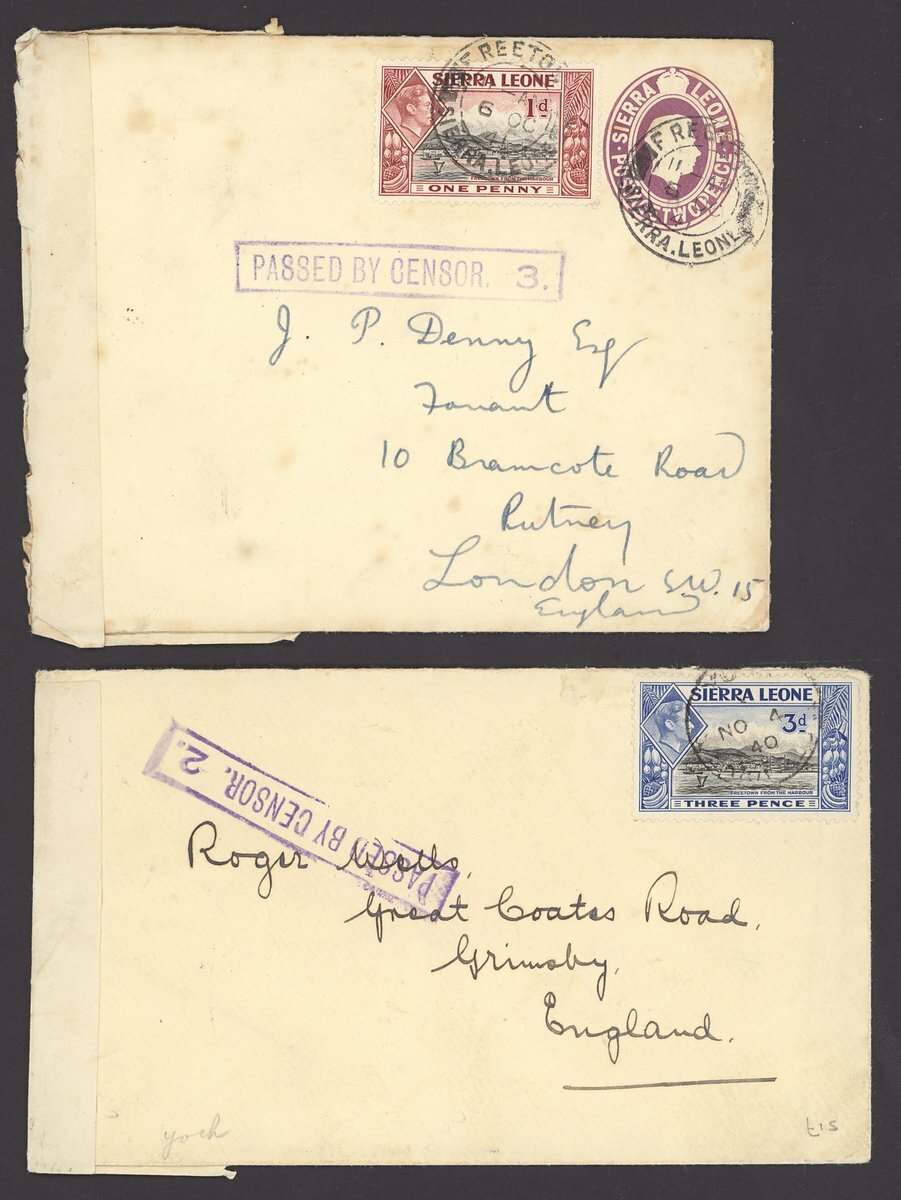 SIERRA LEONE
1d
ONE PENNY
FREETOWN FROM THE HARBOUR
6 OC
41
SIERRA.LEONE
SIERRA LEONE
POSTAGE TWOPENCE
SIERRA.LEONE
PASSED BY CENSOR. 3.
J. P. Denny Esq
10 Bramcote Road
Putney
London S.W. 15
England
SIERRA LEONE
3d
NO 4
40
FREETOWN FROM THE HARBOUR
THREE PENCE
PASSED BY CENSOR. 2.
Roger Wells,
Great Coates Road,
Grimsby,
England.